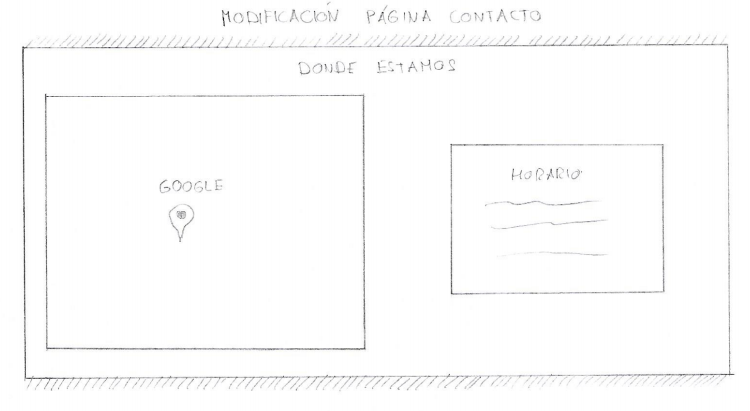 MODIFICACIÓN PÁGINA CONTACTO
DONDE ESTAMOS
GOOGLE
HORARIO